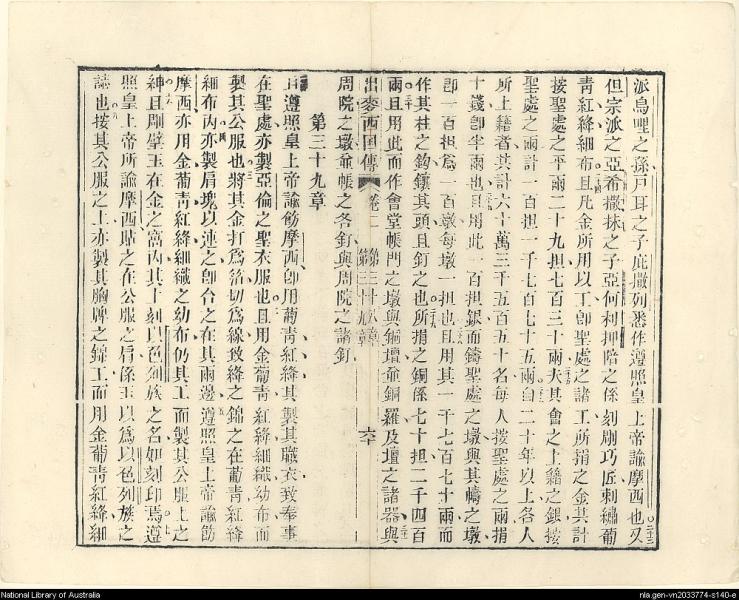 派烏哩之孫戸耳之子庇撒列悉作遵照皇上帝諭摩西也又
但宗派之亞希撒抹之子亞何利押陪之係刻刷巧匠刺繡葡
青紅絳細布且凡金所用以工卽聖處之諸工所捐之金其計
按聖處之平兩二十九担七百三十兩夫其會之上籍之銀按
聖處之兩計一百担一千七百七十五兩自二十年以上各人
所上籍者其計六十萬三千五百五十名每人按聖處之兩捐
十錢卽半兩也且用此一百担銀而鑄聖處之墩與其幬之墩
卽一百担爲一百墩每墩一担也且用其一千七百七十兩而
作其柱之鈎鑲其頭且釘之也所捐之銅係七十担二千四百
兩且用此而作會堂帳門之墩與銅壇並銅羅及壇之諸器與
出麥西國傳 卷二 第三十八章 第三十九章 六十
周院之墩並帳之各釘與周院之諸釘
第三十九章
且遵照皇上帝諭飭摩西卽用葡青紅絳其製其職衣致奉事
在聖處亦製亞倫之聖衣服也且用金葡青紅絳細織幼布而
製其公服也將其金打爲箔切爲線致絳之錦之在葡青紅絳
細布內亦製肩塊以連之卽合之在其兩邊遵照皇上帝諭飭
摩西亦用金葡青紅絳細織之幼布仍其工而製其公服上之
紳且刷璧玉在金之窩內其上刻以色列族之名如刻印焉遵
照皇上帝所諭摩西貼之在公服之肩係玉以爲以色列族之
誌也按其公服之上亦製其胸牌之錦工而用金葡青紅絳細
National Library of Australia
nla.gen-vn2033774-s140-e